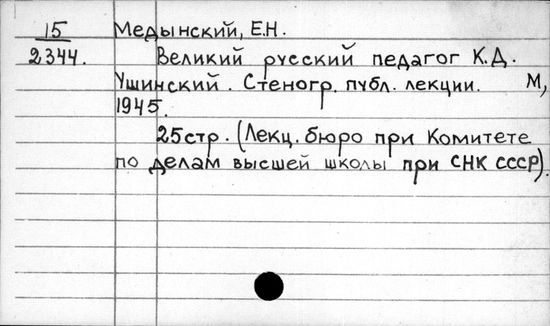 15 Медынский, Е.Н.
2344. Великий русский педагог К.Д.
Ушинский. Стеногр. публ. лекции. М,
1945.
25стр. (Лекц. бюро при Комитете
по делам высшей школы при СНК СССР).